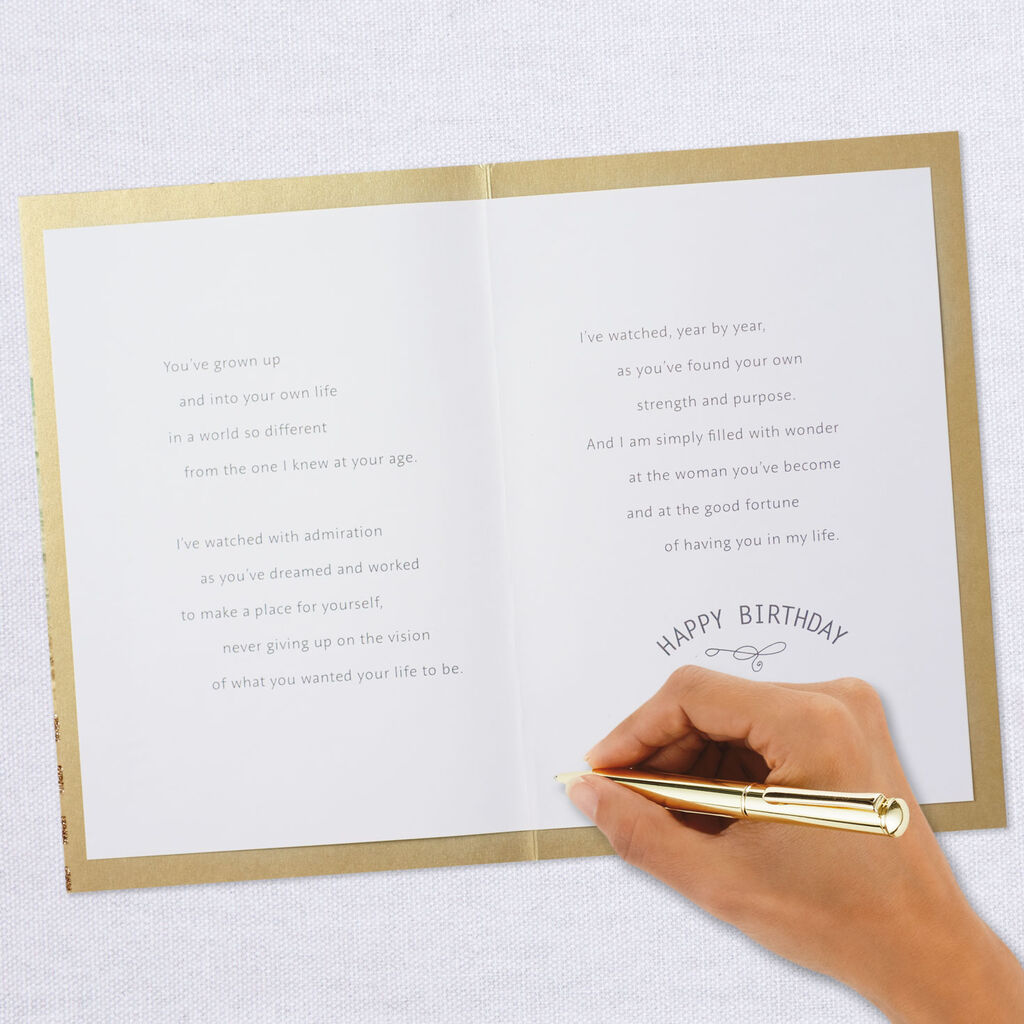 You've grown up
and into your own life
in a world so different
from the one I knew at your age.
I've watched with admiration
as you've dreamed and worked
to make a place for yourself,
never giving up on the vision
of what you wanted your life to be.
I've watched, year by year,
as you've found your own
strength and purpose.
And I am simply filled with wonder
at the woman you've become
and at the good fortune
of having you in my life.
HAPPY BIRTHDAY